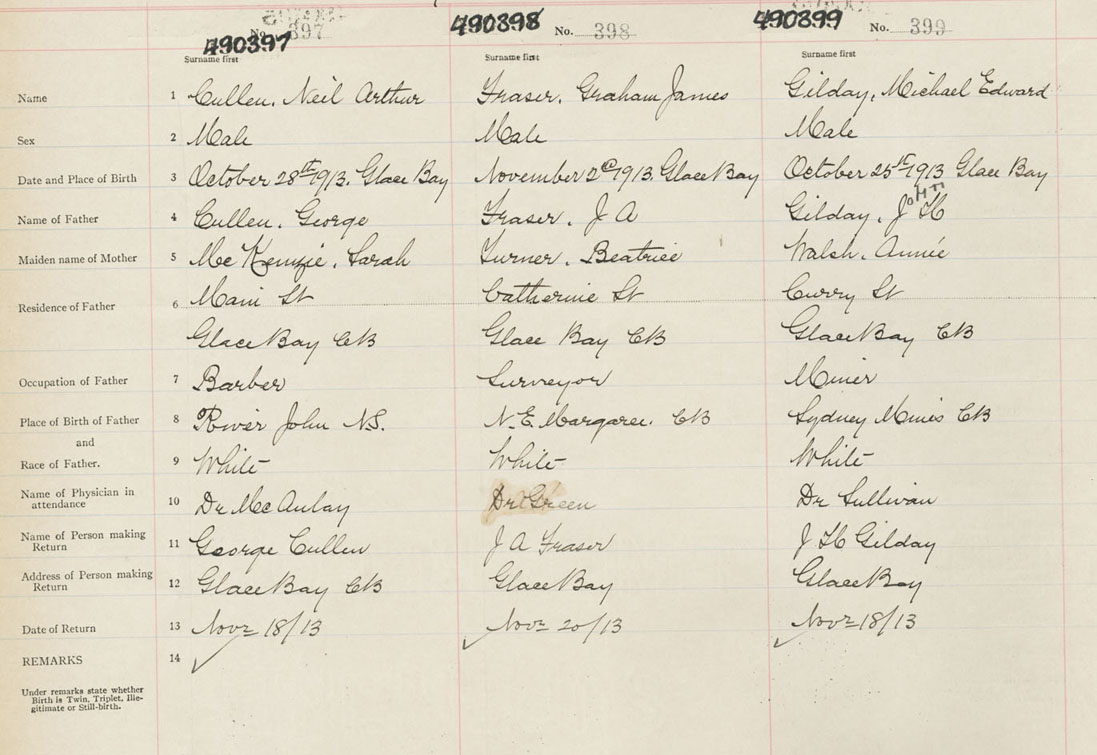 490397 No. 397 490398 No. 398 490399 No. 399
Surname first Surname first Surname first
Name 1 Cullen, Neil Arthur Fraser, Graham James Gilday, Michael Edward
Sex 2 Male Male Male
Date and Place of Birth 3 October 28th 1913. Glace Bay November 2nd 1913. Glace Bay October 25th 1913 Glace Bay
Name of Father 4 Cullen, George Fraser, J A Gilday, John H
Maiden name of Mother 5 McKenzie, Sarah Turner, Beatrice Walsh, Annie
Residence of Father 6 Main St Catherine St Curry St
Glace Bay CB Glace Bay CB Glace Bay CB
Occupation of Father 7 Barber Surveyor Miner
Place of Birth of Father 8 River John N.S. N.E. Margaree. CB Sydney Mines CB
and
Race of Father. 9 White White White
Name of Physician in attendance 10 Dr McAulay Dr Green Dr Sullivan
Name of Person making Return 11 George Cullen J A Fraser J H Gilday
Address of Person making Return 12 Glace Bay CB Glace Bay Glace Bay
Date of Return 13 Novr 18/13 Novr 20/13 Novr 18/13
REMARKS 14
Under remarks state whether
Birth is Twin, Triplet, Ille-
gitimate or Still-birth.